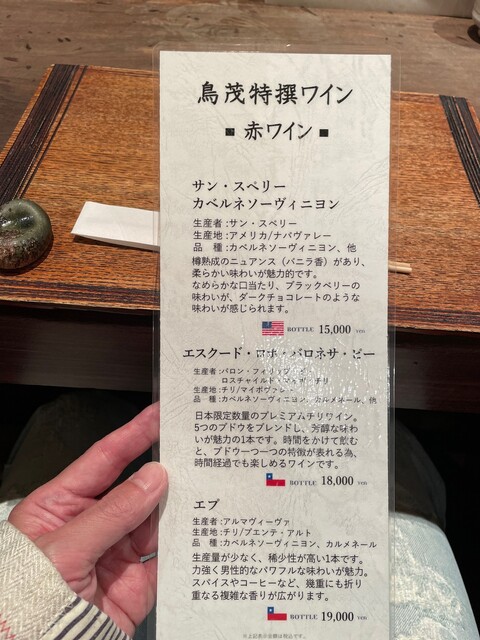 鳥茂特撰ワイン
■ 赤ワイン ■
サン・スペリー
カベルネソーヴィニヨン
生産者:サン・スペリー
生産地:アメリカ/ナパヴァレー
品 種:カベルネソーヴィニヨン、他
樽熟成のニュアンス(バニラ香)があり、
柔らかい味わいが魅力的です。
なめらかな口当たり、ブラックベリーの
味わいが、ダークチョコレートのような
味わいが感じられます。
BOTTLE 15,000 yen
エスクード・ロホ・バロネサ・ピー
生産者:バロン・フィリップ・ド・
ロスチャイルド・マイポ・チリ
生産地:チリ/マイポヴァレー
品 種:カベルネソーヴィニヨン、カルメネール、他
日本限定数量のプレミアムチリワイン。
5つのブドウをブレンドし、芳醇な味わ
いが魅力の1本です。時間をかけて飲む
と、ブドウ一つ一つの特徴が表れる為、
時間経過でも楽しめるワインです。
BOTTLE 18,000 yen
エプ
生産者:アルマヴィーヴァ
生産地:チリ/プエンテ・アルト
品 種:カベルネソーヴィニヨン、カルメネール
生産量が少なく、稀少性が高い1本です。
力強く男性的なパワフルな味わいが魅力。
スパイスやコーヒーなど、幾重にも折り
重なる複雑な香りが広がります。
BOTTLE 19,000 yen
※上記表示金額は税込です。